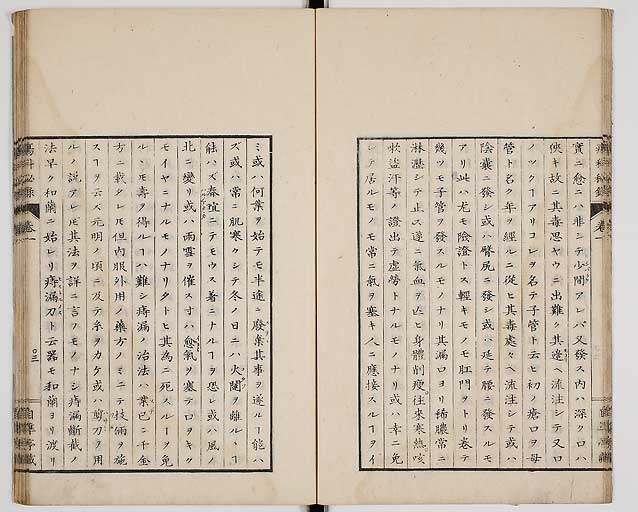 實ニ愈ニハ非シテ少間アレバ又發ス内ハ深ク口ハ
狹キ故ニ其毒思ヤウニ出難ク其邊ヘ流注シテ又口
ノツクヿアリコレヲ名テ子管ト云ヒ初ノ瘡口ヲ母
管ト名ク年ヲ經ルニ從ヒ其毒處々ヘ流注シテ或ハ
陰嚢ニ發シ或ハ臀尻ニ發シ或ハ延テ腰ニ發スルモ
アリ此ハ尤モ陰證トス輕キモノモ肛門ヲトリ巻テ
幾ツモ子管ヲ發スルモノナリ其漏口ヨリ稀膿常ニ
淋瀝シテ止ス遂ニ氣血ヲ亡ヒ身體削瘦往來寒熱咳
嗽盗汗等ノ證出テ虚勞トナルモノナリ或ハ幸ニ免
レテ居ルモノモ常ニ氣ヲ塞キ人ニ應接スルヿヲイ
ミ或ハ何業ヲ始テモ半途ニ廢棄其事ヲ遂ルヿ能ハ
ズ或ハ常ニ肌寒クシテ冬ノ日ニハ火闥ヲ離ルヽヿ
能ハズ春暄ニテモウス着ニナルヿヲ恐レ或ハ風ノ
北ニ變リ或ハ雨雲ヲ催ス寸ハ愈氣ヲ塞テロヲキク
モイヤニナルモノナリタトヒ其為ニ死スルヿヲ免
ルヽモ壽ヲ得ルヿハ難シ痔漏ノ治法ハ業已ニ千金
方ニ載タレ𪜈但内服外用ノ藥方ノミニテ技倆ヲ施
スヿヲ云ズ元明ノ頃ニ及テ糸ヲカケ或ハ剪刀ヲ用
ルノ説アレ𪜈其法ヲ詳ニ言フモノナシ痔漏斷截ノ
法早ク和蘭ニ始レリ痔漏刀ト云器モ和蘭ヨリ渡リ
瘍科秘録
卷一
〇三